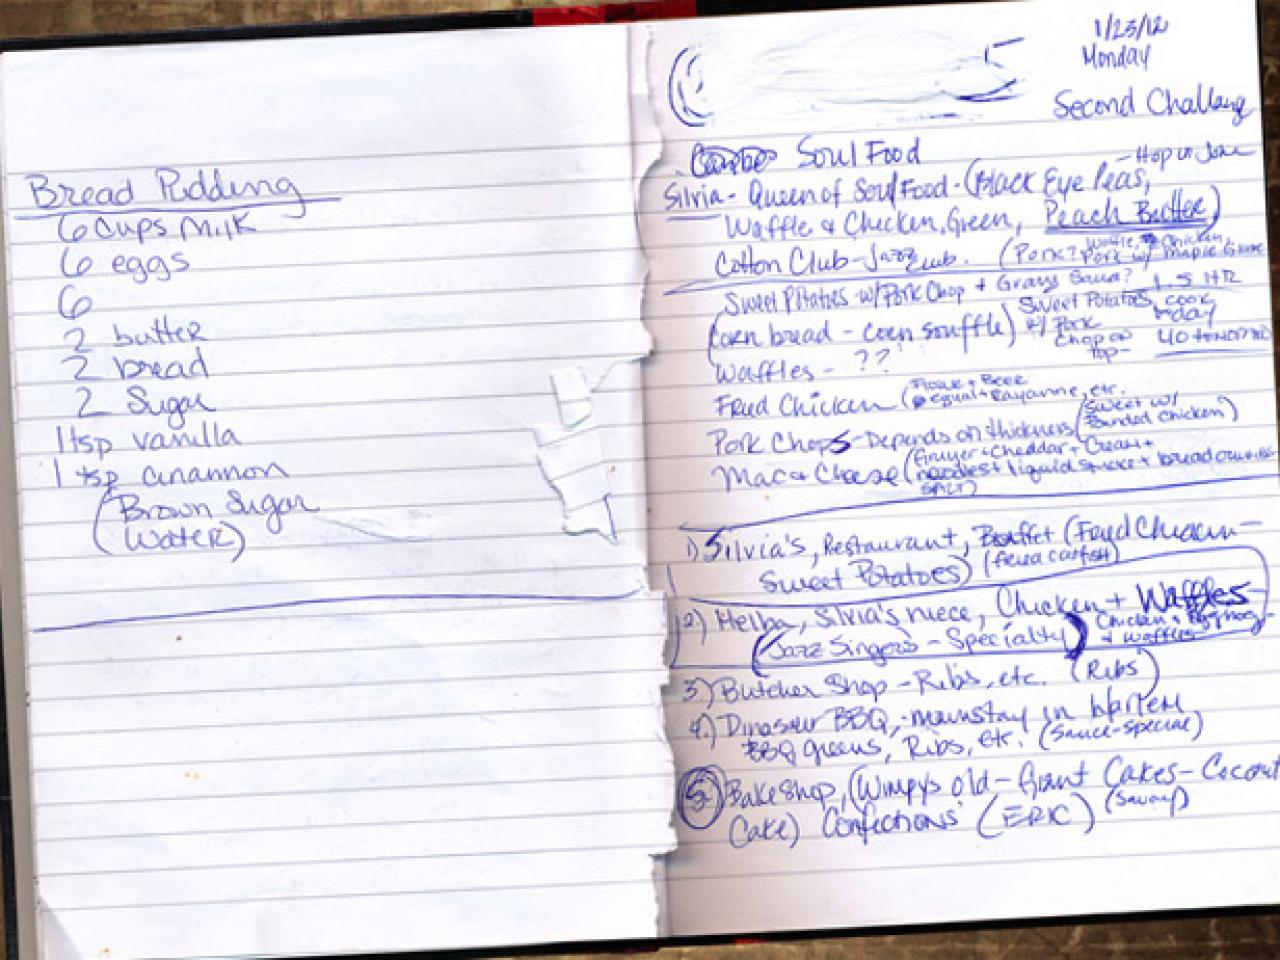 Bread Pudding
6 cups Milk
6 eggs
6
2 butter
2 bread
2 Sugar
1 tsp vanilla
1 tsp cinannon
(Brown Sugar
Water)
1/23/12
Monday
Second Challang
Soul Food
- Hop in Jone
Silvia - Queen of Soul Food - (Black Eye Peas,
Waffle & Chicken, Green, Peach Butter)
Cotton Club - Jazz Club. (Pork? Waffle, Chicken,
Pork w/ Maple Glaze
Sweet Potatoes w/ Pork Chop + Gravy Sauce? 1.5 HR
(Corn bread - Corn souffle) Sweet Potatoes, cook
w/ Pork today
Chop on 40 tomorrow
Top -
Waffles - ??
Fried Chicken (Flour + Beer
equal + Cayanne, etc.
Pork Chops - Depends on thickness (Sweet w/
Pounded Chicken)
Mac & Cheese (Gruyer + Cheddar + Cream +
noodles + liquid smoke + bread
SALT)
1) Silvia's, Restaurant, Buffet (Fried Chicken -
Sweet Potatoes) (fried catfish)
2) Melba, Silvia's niece, Chicken + Waffles -
(Jazz Singers - Specialty) Chicken + Eggnog -
+ Waffles
3.) Butcher Shop - Ribs, etc. (Ribs)
4.) Dinosaur BBQ, - mainstay in Harlem,
BBQ greens, Ribs, etc. (Sauce-special)
5) Bake Shop, (Wimpys old - Giant Cakes - Coconut
Cake) Confections (ERIC) (Savoy)